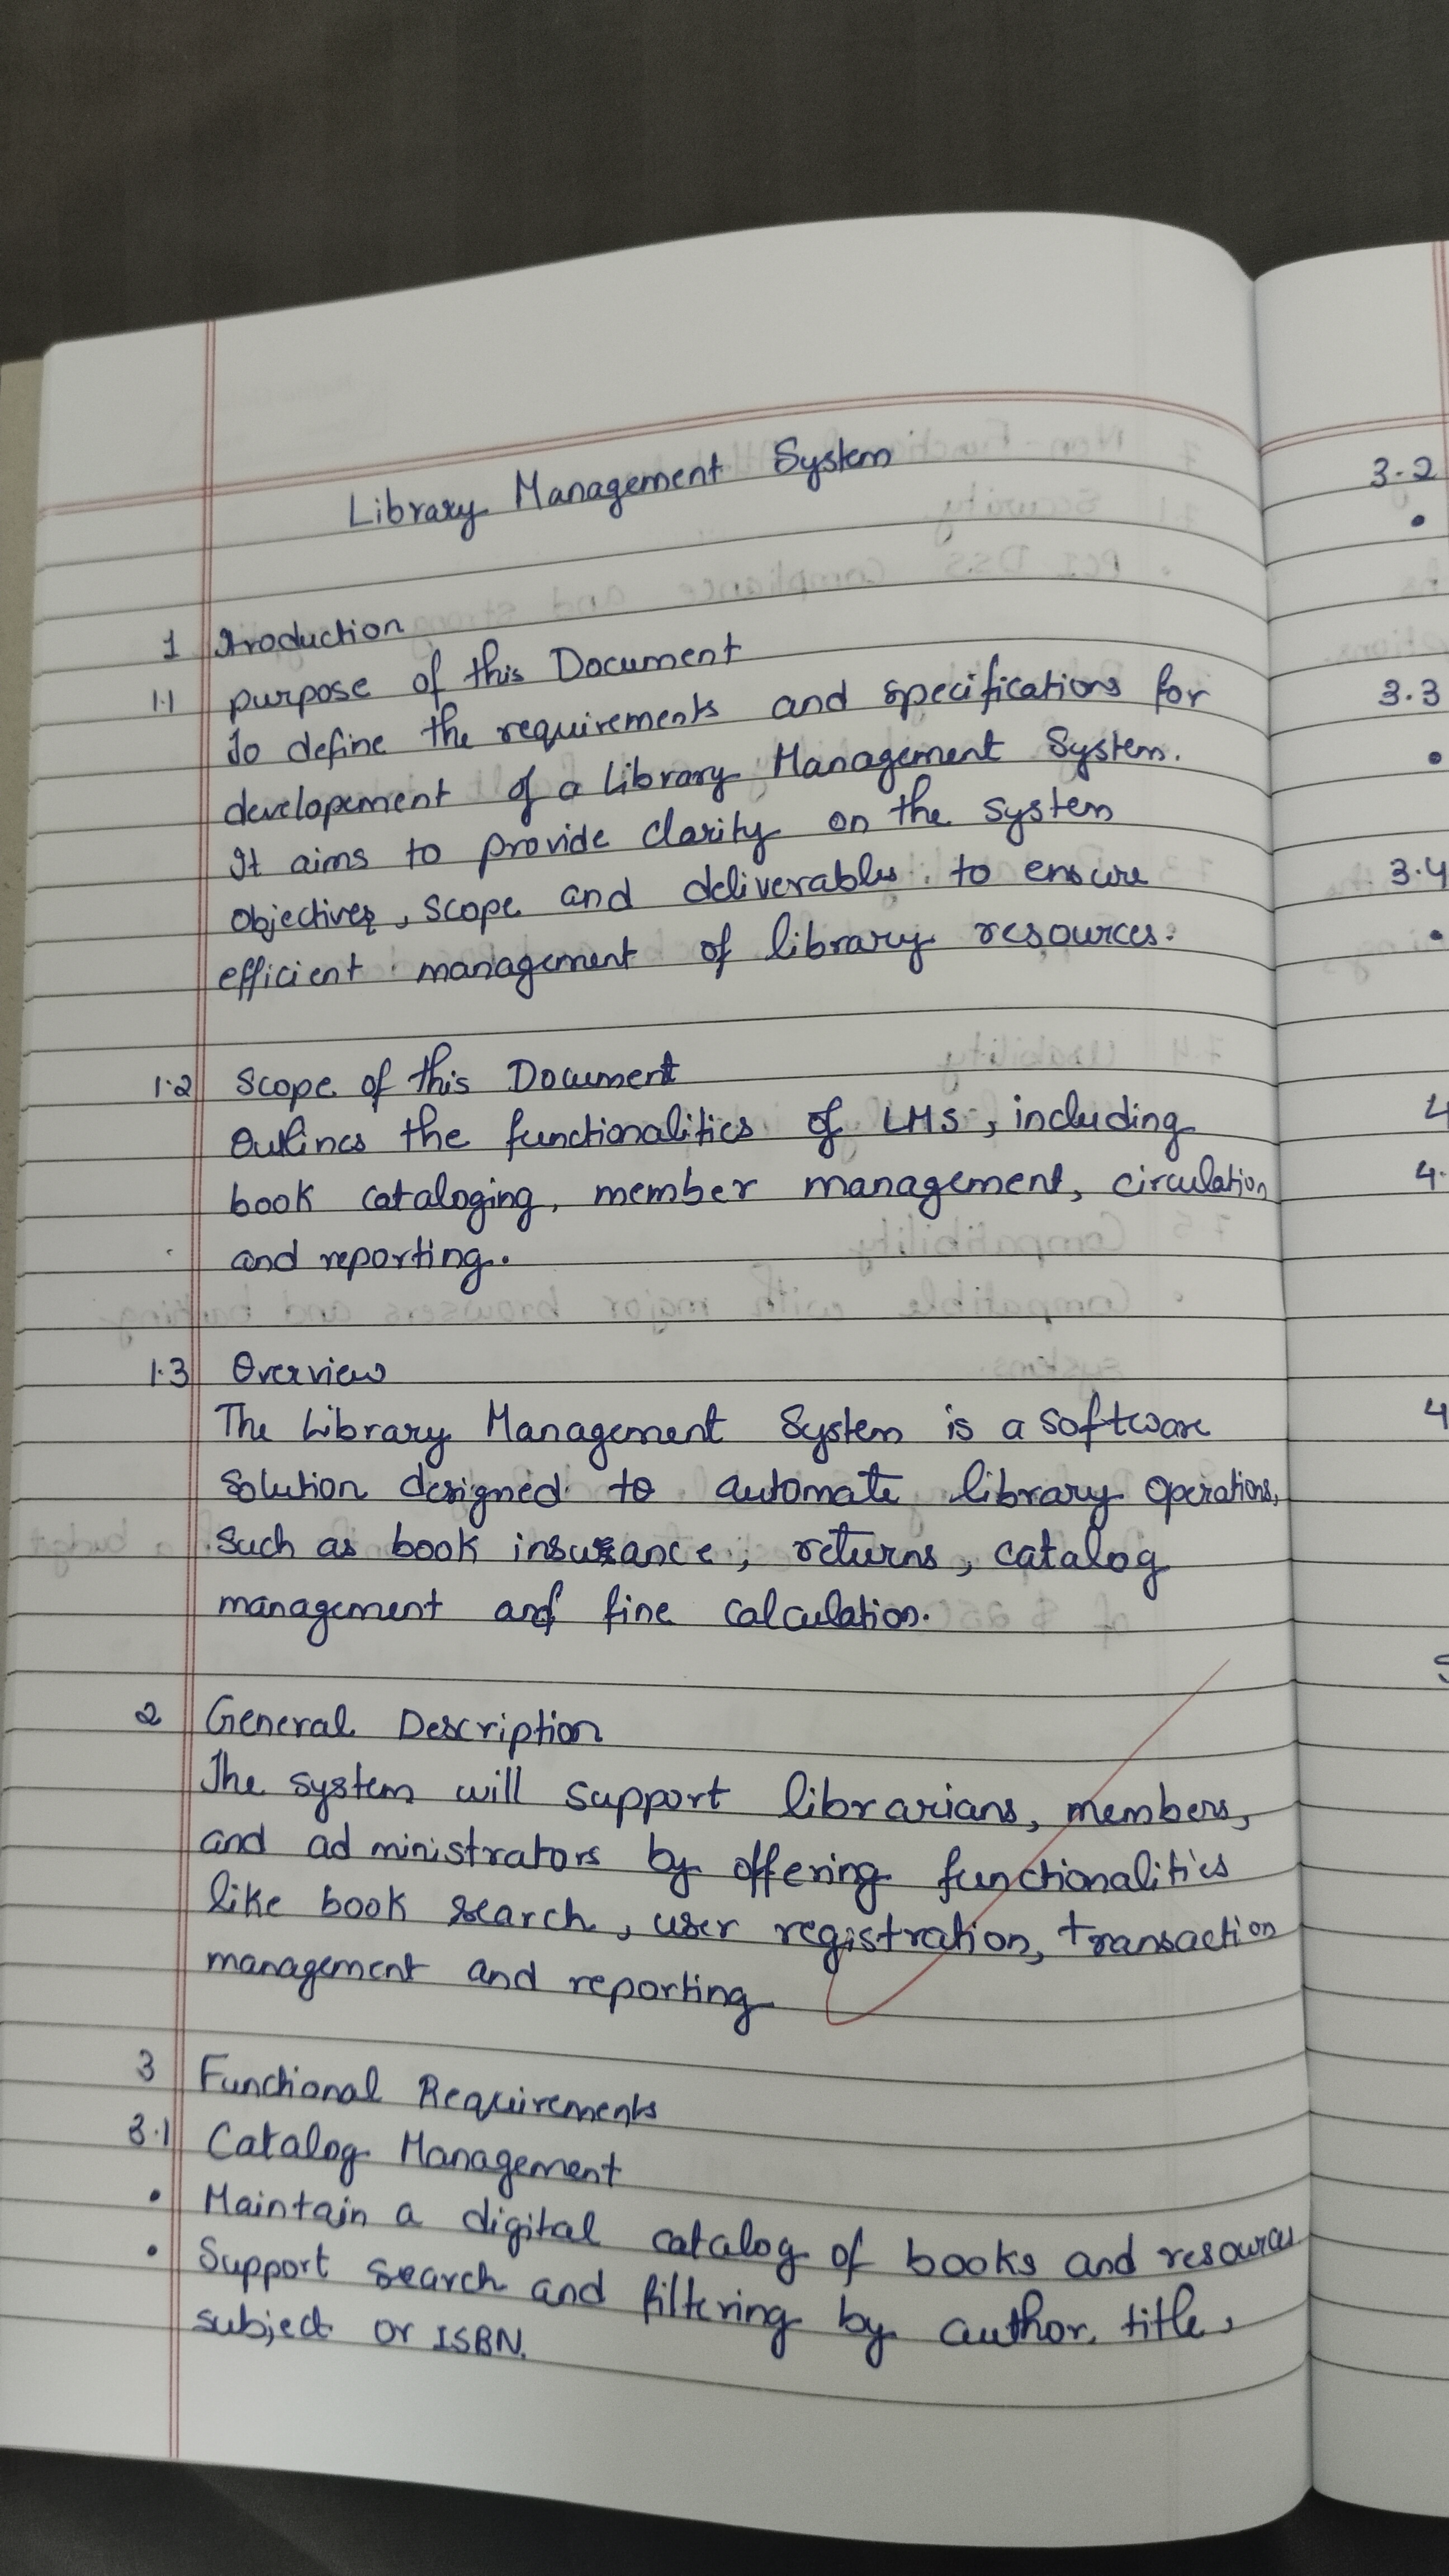 Library Management System
1 Itroduction
1.1 purpose of this Document
To define the requirements and specifications for
developement of a Library Management System.
It aims to provide clarity on the system
Objectives, scope and deliverables to ensure
efficient management of library resources.
1.2 Scope of this Document
Outlines the functionalities of LMS, including
book cataloging, member management, circulation
and reporting.
1.3 Overview
The Library Management System is a software
solution designed to automate library operations,
such as book insurance, returns, catalog
management and fine calculation.
2 General Description
The system will support librarians, members,
and administrators by offering functionalities
like book search, user registration, transaction
management and reporting
3 Functional Requirements
3.1 Catalog Management
• Maintain a digital catalog of books and resources
• Support search and filtering by author, title,
subject or ISBN.
3.2
•
3.3
•
3.4
•
4
4.
4